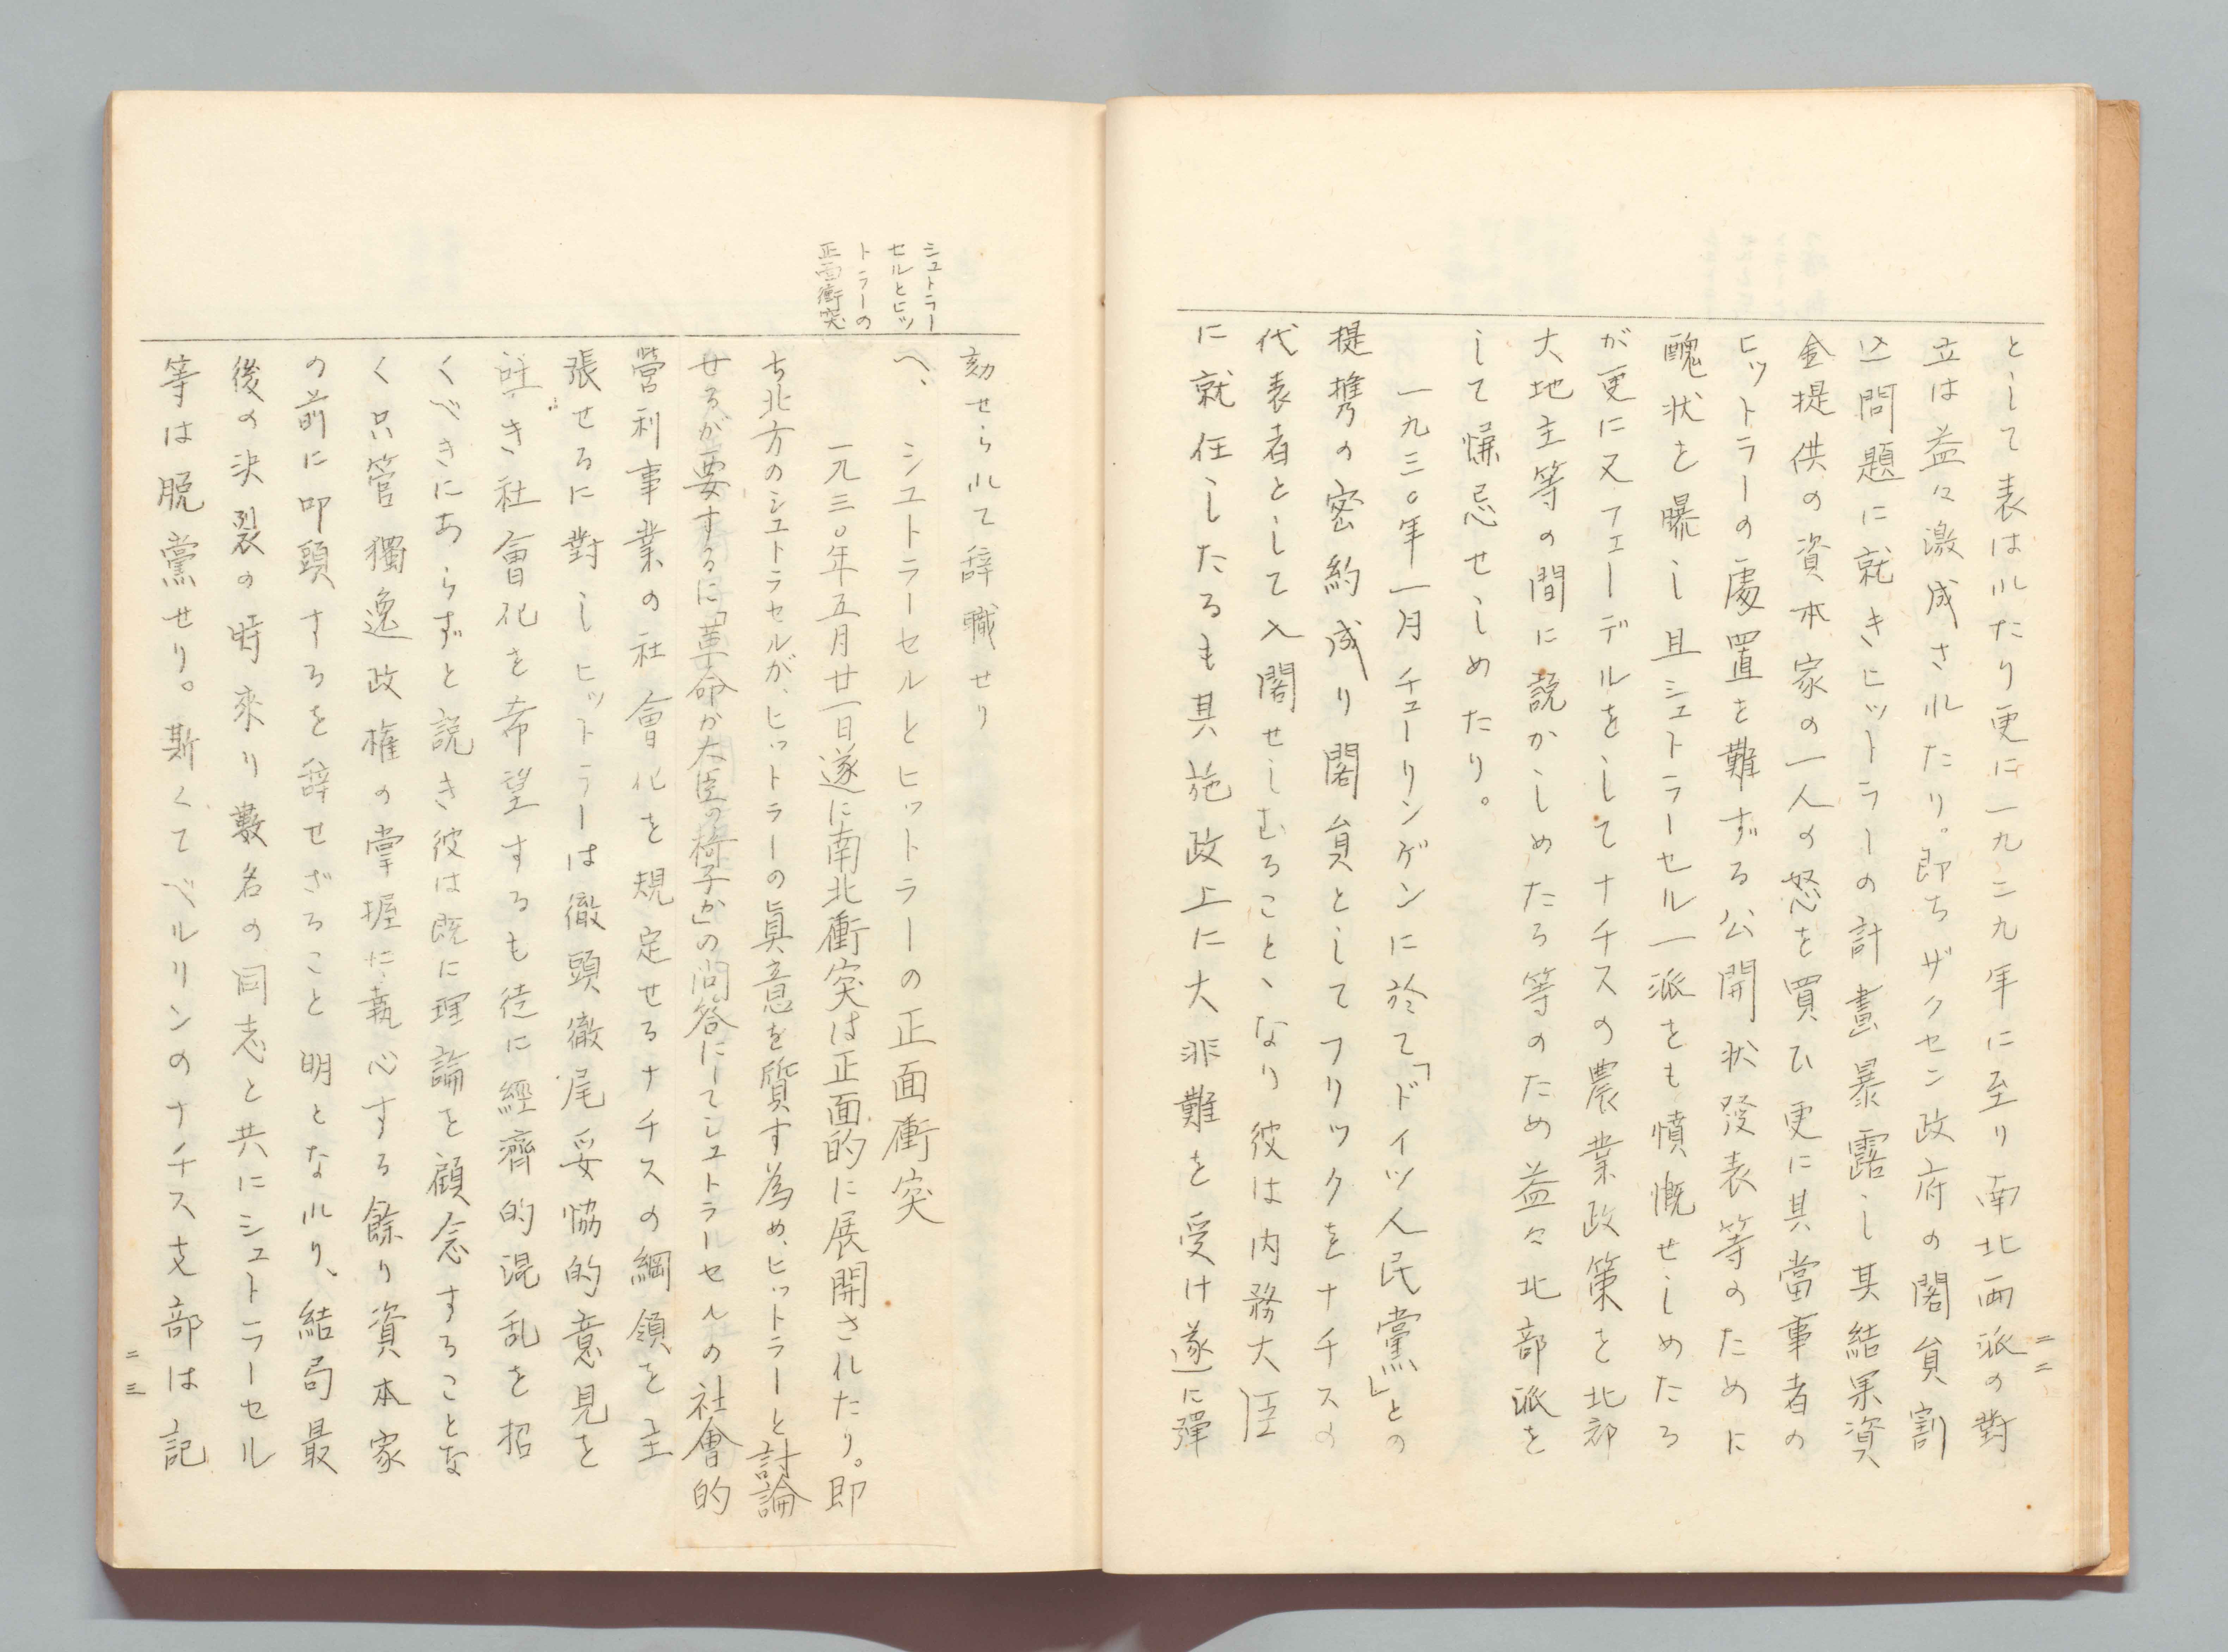 として表はれたり更に一九二九年に至り南北両派の對
立は益々激成されたり。即ちザクセン政府の閣員割
込問題に就きヒットラーの計畫暴露し其結果資
金提供の資本家の一人の怒を買ひ更に其當事者の
ヒットラーの處置を難ずる公開状發表等のために
醜状を曝し且シュトラーセル一派をも憤慨せしめたる
が更に又フェーデルをしてナチスの農業政策を北部
大地主等の間に説かしめたる等のため益々北部派を
して慊忌せしめたり。
一九三〇年一月チューリンゲンに於て「ドイツ人民黨」との
提携の密約成り閣員としてフリックをナチスの
代表者として入閣せしむることゝなり彼は内務大臣
に就任したるも其施政上に大非難を受け遂に彈
二二
シュトラー
セルとヒッ
トラーの
正面衝突
劾せられて辞職せり
ヘ、シュトラーセルとヒットラーの正面衝突
一九三〇年五月廿一日遂に南北衝突は正面的に展開されたり。即
ち北方のシュトラセルが、ヒットラーの眞意を質す為め、ヒットラーと討論
せるが要するに「革命か大臣の椅子か」の問答にしてシュトラーセルの社會的
營利事業の社會化を規定せるナチスの綱領を主
張せるに對しヒットラーは徹頭徹尾妥協的意見を
吐き社會化を希望するも徒に經濟的混乱を招
くべきにあらずと説き彼は既に理論を顧念することな
く只管獨逸政権の掌握に執心する餘り資本家
の前に叩頭するを辞せざること明となれり、結局最
後の決裂の時來り數名の同志と共にシュトラーセル
等は脱黨せり。斯くてベルリンのナチス支部は記
二三